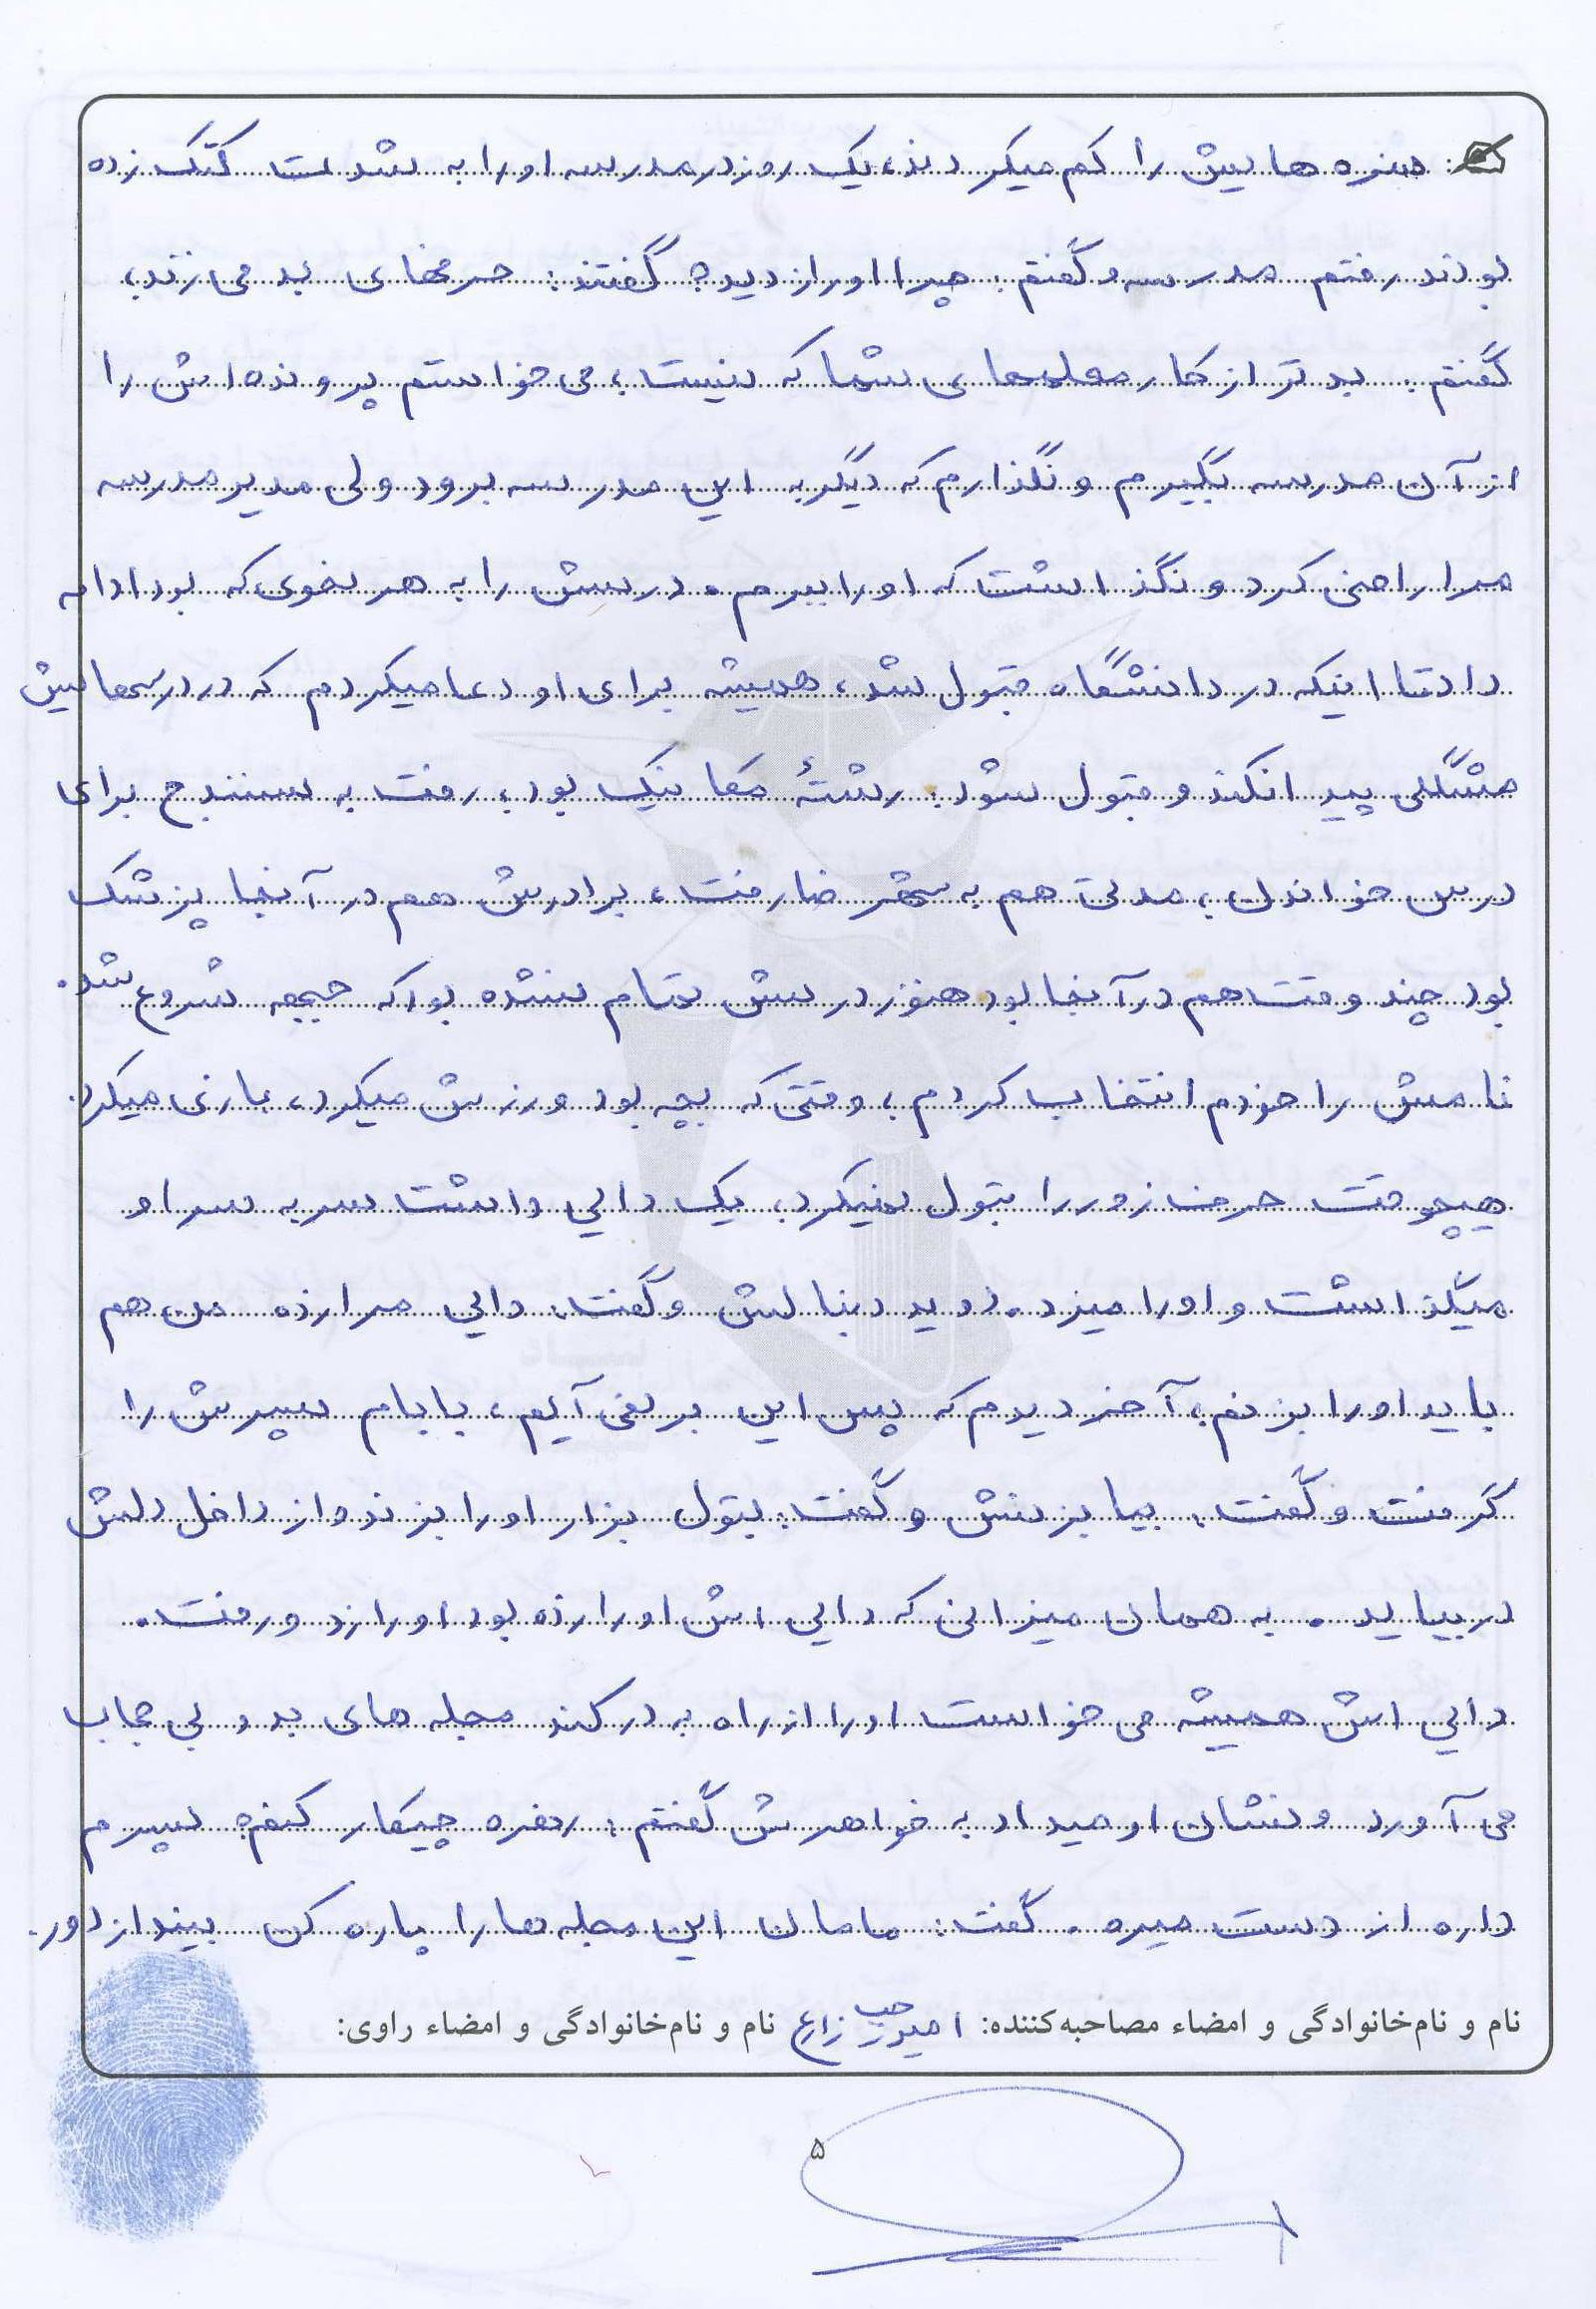 نمره هایش را کم میکردند، یک روز در مدرسه او را به شدت کتک زده
بودند رفتم مدرسه و گفتم: چرا او را زدید؟ گفتند: حرفهای بد می زند،
گفتم: بدتر از کار معلمهای شما که نیست، می خواستم پرونده اش را
از آن مدرسه بگیرم و نگذارم که دیگر به این مدرسه برود ولی مدیر مدرسه
مرا راضی کرد و نگذاشت که او را ببرم. درسش را به هر نحوی که بود ادامه
داد تا اینکه در دانشگاه قبول شد، همیشه برای او دعا میکردم که در درسهایش
مشکلی پیدا نکند و قبول شود. رشتهٔ مکانیک بود، رفت به سنندج برای
درس خواندن، مدتی هم به شهرضا رفت، برادرش هم در آنجا پزشک
بود چند وقت هم در آنجا بود هنوز درسش تمام نشده بود که جبهه شروع شد.
نامش را خودم انتخاب کردم، وقتی که بچه بود ورزش میکرد، بازی میکرد.
هیچوقت حرف زور را قبول نمیکرد، یک دایی داشت سر به سر او
میگذاشت و او را میزد. دوید دنبالش و گفت: دایی مرا زده من هم
باید او را بزنم، آخر دیدم که پس این بر نمی آیم، بابام پسرش را
گرفت و گفت: بیا بزنش و گفت: بتول بزار او را بزند و از داخل دلش
در بیاید. به همان میزانی که دایی اش او را زده بود او را زد و رفت.
دایی اش همیشه می خواست او را از راه به در کند مجله های بد و بی حجاب
می آورد و نشان او میداد به خواهرش گفتم: چیکار کنم؟ پسرم
داره از دست میره. گفت: مامان این مجله ها را پاره کن بینداز دور.
نام و نام‌خانوادگی و امضاء مصاحبه‌کننده: امیر زارع نام و نام‌خانوادگی و امضاء راوی:
۵